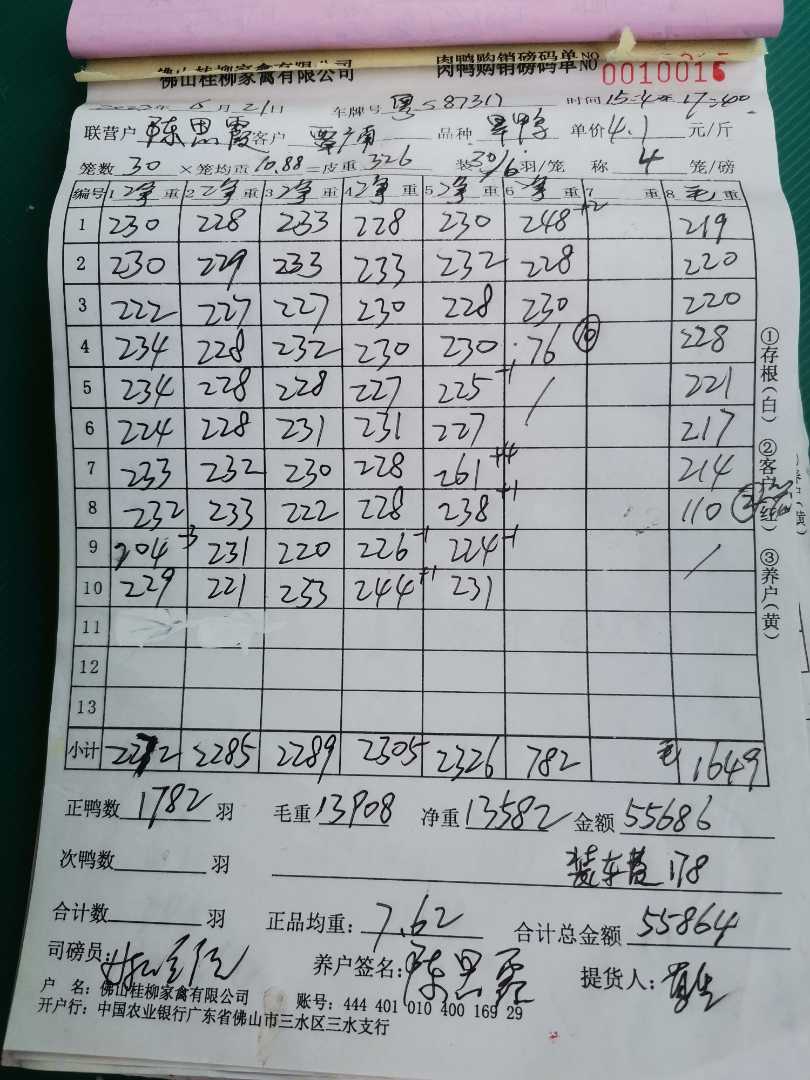 佛山桂柳家禽有限公司 肉鸭购销磅码单 NO 0010016
月21日 车牌号 粤S87317 时间 15:40 17:00
联营户 陈思霞 客户 品种 单价 4.1 元/斤
笼数 30 ×笼均重 10.88 =皮重 326 装 30/6 羽/笼 称 4 笼/磅
编号 1 净 重 2 净 重 3 净 重 4 净 重 5 净 重 6 净 重 7 重 8 毛 重
1 230 228 233 228 230 248 +2 219
2 230 229 233 233 232 228 220
3 222 227 227 230 228 230 220
4 234 228 232 230 230 76 ⑩ 228
5 234 228 228 227 225 -1 / 221
6 224 228 231 231 227 217
7 233 232 230 228 261 +4 214
8 232 233 222 228 238 +1 110
9 204 -3 231 220 226 -1 224 -1 /
10 229 221 233 244 +1 231
11
12
13
小计 2272 2285 2289 2305 2326 782 毛 1649
①存根(白) ②客户(红) ③养户(黄)
正鸭数 1782 羽 毛重 13908 净重 13582 金额 55686
次鸭数 羽 装车费 178
合计数 羽 正品均重: 7.62 合计总金额 55864
司磅员: 养户签名: 陈思霞 提货人:
户 名: 佛山桂柳家禽有限公司 账号: 444 401 010 400 169 29
开户行: 中国农业银行广东省佛山市三水区三水支行